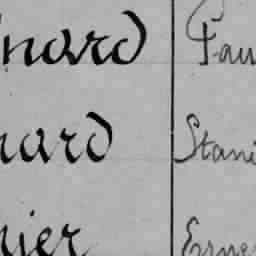 nard Pau
nard Stani
nier Ernes